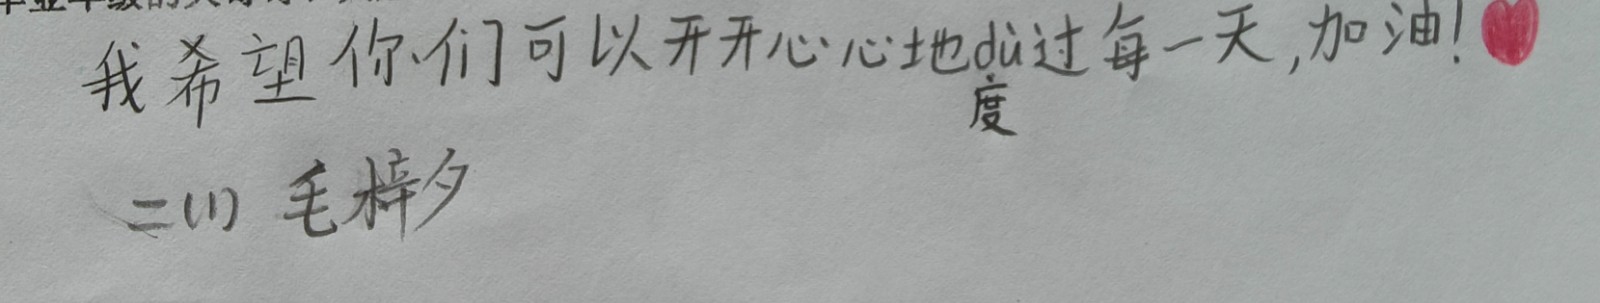 我希望你们可以开开心心地dù过每一天,加油!
度
二(1) 毛梓夕